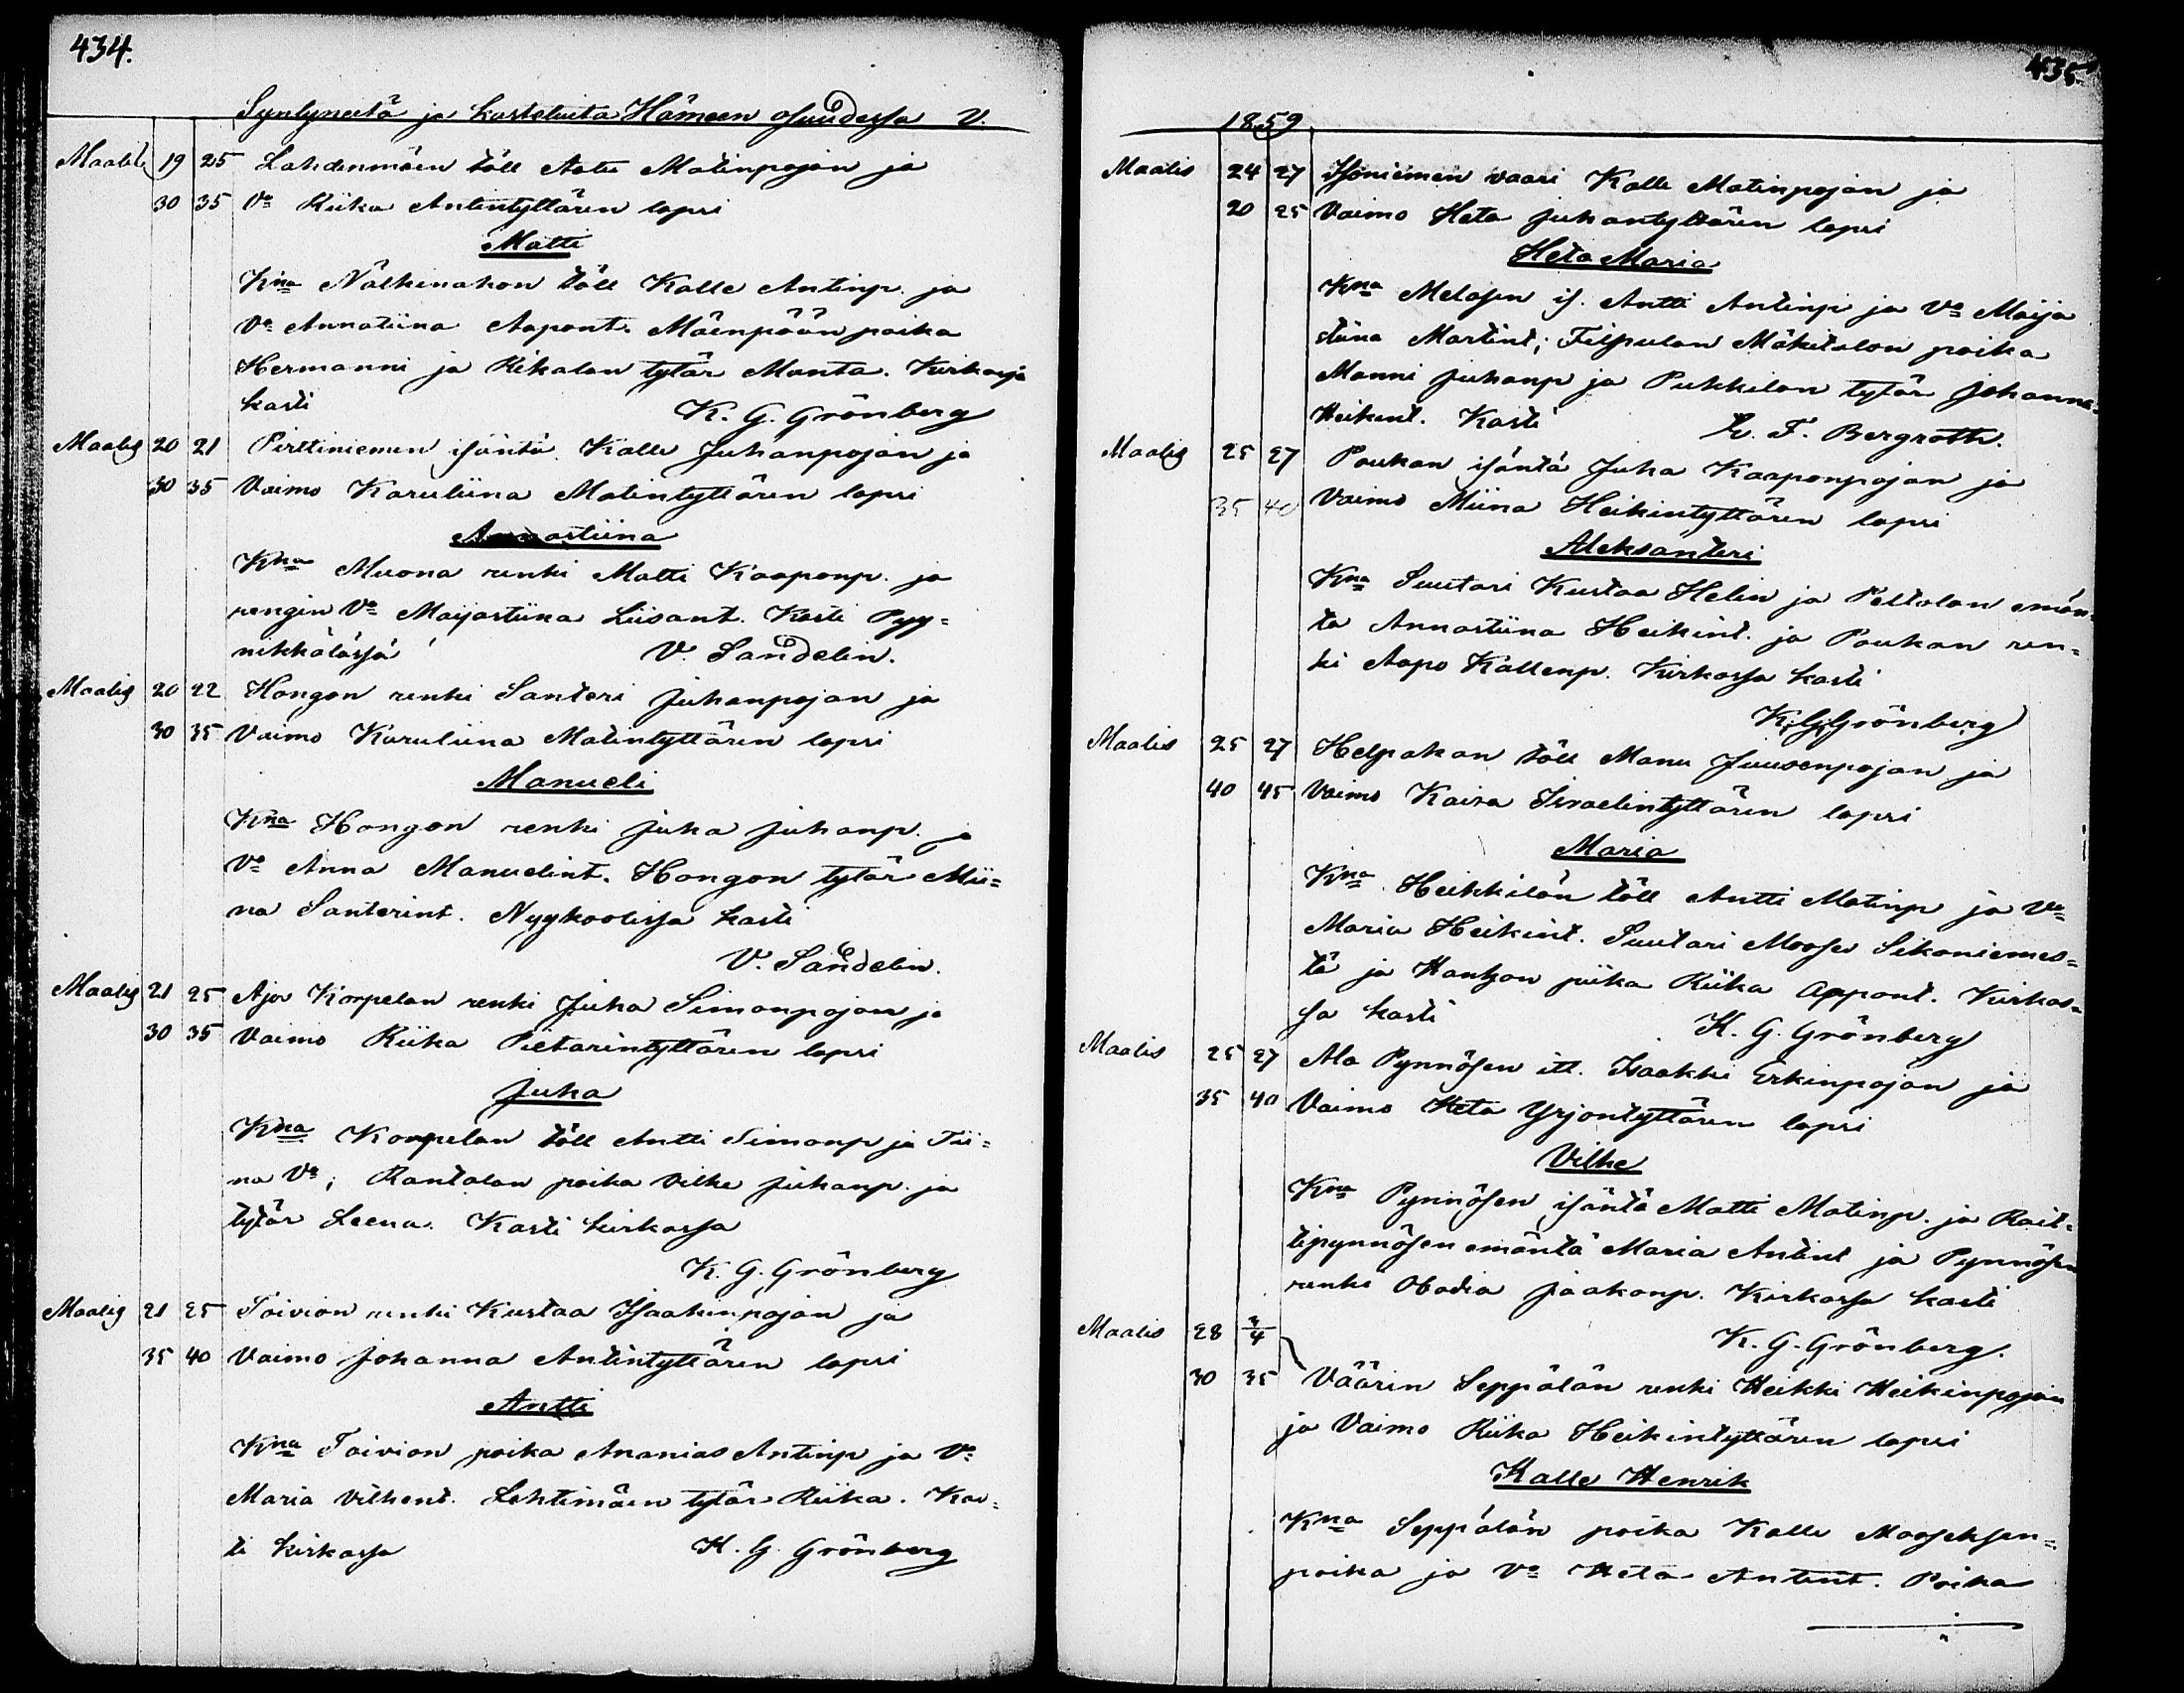 434.
Syntyneitä ja kasteluita Hämeen osuudessa V.
Maalis 19 25 Lahdenmäen töll Aatu Matinpojan ja
30 35 Vo Riika Antintyttären lapsi
Matti
Kna Nälkinahon töll Kalle Antinp. ja
Vo Annatiina Aapont. Mäenpään poika
Hermanni ja Rikalan tytär Manta. Kirkossa
kasti K. G. Grönberg
Maalis 20 21 Pirttiniemen isäntä Kalle Juhanpojan ja
30 35 Vaimo Karuliina Matintyttären lapsi
Annastiina
Kna Muona renki Matti Kaaponp. ja
rengin Vo Maijastiina Liisant. Kasti Pyy=
nikkälässä V. Sandelin.
Maalis 20 22 Hongon renki Santeri Juhanpojan ja
30 35 Vaimo Karuliina Matintyttären lapsi
Manueli
Kna Hongon renki Juha Juhanp. ja
Vo Anna Manuelint. Hongon tytär Mii=
na Santerint. Nygkoolissa kasti
V. Sandelin.
Maalis 21 25 Ajo Korpelan renki Juha Simonpojan ja
30 35 Vaimo Riika Pietarintyttären lapsi
Juha
Kna Korpelan töll Antti Simonp ja Tii=
na Vo; Rantalan poika Vilke Juhanp. ja
tytär Leena. Kasti kirkossa
K. G. Grönberg
Maalis 21 25 Toivion renki Kustaa Isaakinpojan ja
35 40 Vaimo Johanna Antintyttären lapsi
Antti
Kna Toivion poika Ananias Antinp ja Vo
Maria Vilhent. Lehtimäen tytär Riika. Kas=
ti kirkossa K. G. Grönberg
435.
1859
Maalis 24 27 Isoniemen vaari Kalle Matinpojan ja
20 25 Vaimo Heta Juhantyttären lapsi
Heta Maria
Kna Melasen is. Antti Antinp ja Vo Maija
stiina Martint; Filpulan Mäkitalon poika
Manni Juhanp ja Pukkilan tytär Johanna
Heikint. Kasti F. Bergroth.
Maalis 25 27 Poukan isäntä Juha Kaaponpojan ja
35 40 Vaimo Miina Heikintyttären lapsi
Aleksanteri
Kna Suutari Kustaa Helin ja Peltolan emän=
tä Annastiina Heikint. ja Poukan ren=
ki Aapo Kallenp. Kirkossa kasti
K. G. Grönberg
Maalis 25 27 Helpakan töll Manu Juusenpojan ja
40 45 Vaimo Kaisa Israelintyttären lapsi
Maria
Kna Heikkilän töll Antti Matinp ja Vo
Maria Heikint. Suutari Mooses Sikoniemes=
tä ja Hantzon piika Riika Appont. Kirkos=
sa kasti K. G. Grönberg
Maalis 25 27 Ala Pynnösen itl. Isaakki Erkinpojan ja
35 40 Vaimo Heta Yrjöntyttären lapsi
Vilhe
Kna Pynnösen isäntä Matti Matinp. ja Rait=
tipynnösen emäntä Maria Antint ja Pynnösen
renki Obadia Jaakonp. Kirkossa kasti
K. G. Grönberg.
Maalis 28 3/4
30 35 Väärin Seppälän renki Heikki Heikinpojan
ja Vaimo Riika Heikintyttären lapsi
Kalle Henrik
Kna Seppälän poika Kalle Mooseksen=
poika ja Vo Heta Antint. Poika